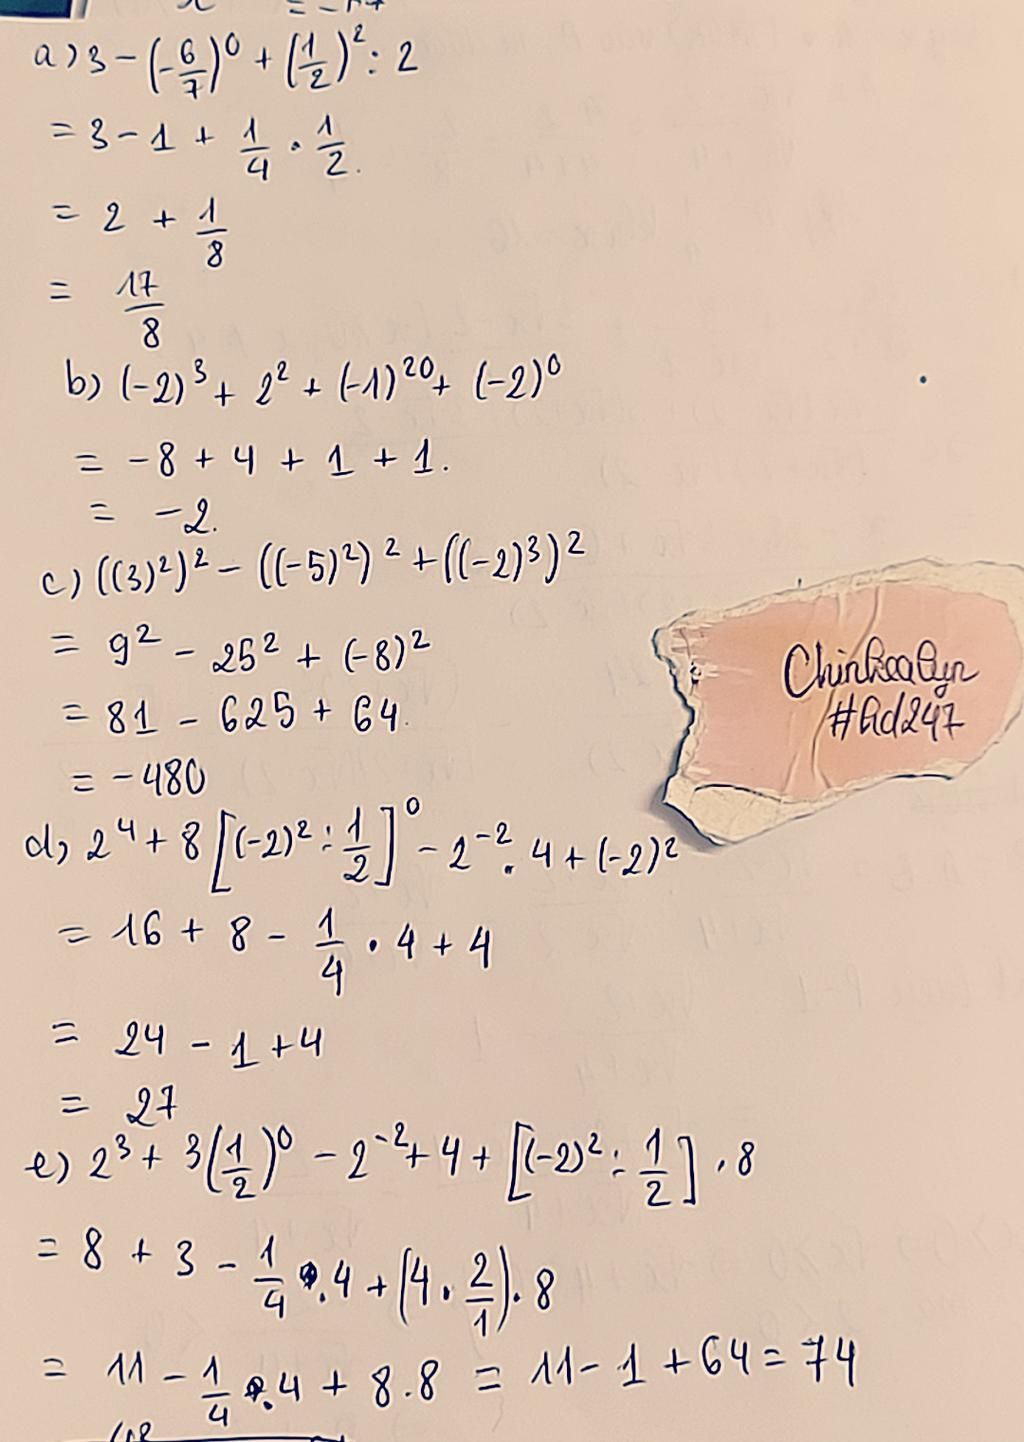 a) 3 - (-6/7)⁰ + (1/2)² : 2
= 3 - 1 + 1/4 . 1/2.
= 2 + 1/8
= 17/8
b) (-2)³ + 2² + (-1)²⁰ + (-2)⁰
= -8 + 4 + 1 + 1.
= -2.
c) ((3)²)² - ((-5)²)² + ((-2)³)²
= 9² - 25² + (-8)²
= 81 - 625 + 64.
= -480
#Ad247
d) 2⁴ + 8 [(-2)² : 1/2]⁰ - 2⁻² . 4 + (-2)²
= 16 + 8 - 1/4 . 4 + 4
= 24 - 1 + 4
= 27
e) 2³ + 3(1/2)⁰ - 2⁻² + 4 + [(-2)² : 1/2] . 8
= 8 + 3 - 1/4 . 4 + (4 . 2/1) . 8
= 11 - 1/4 . 4 + 8.8 = 11 - 1 + 64 = 74